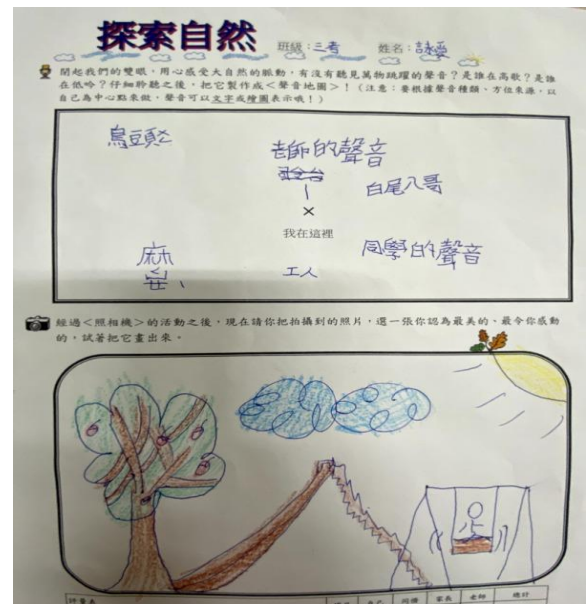 探索自然
班級：三青 姓名：詠愛
閉起我們的雙眼，用心感受大自然的脈動，有沒有聽見萬物跳躍的聲音？是誰在高歌？是誰
在低吟？仔細聆聽之後，把它製作成＜聲音地圖＞！（注意：要根據聲音種類、方位來源，以
自己為中心點來做，聲音可以文字或繪圖表示哦！）
老師的聲音
白尾八哥
×
我在這裡
同學的聲音
麻
工人
經過＜照相機＞的活動之後，現在請你把拍攝到的照片，選一張你認為最美的、最令你感動
的，試著把它畫出來。
評量表
同儕 家長 老師 總評